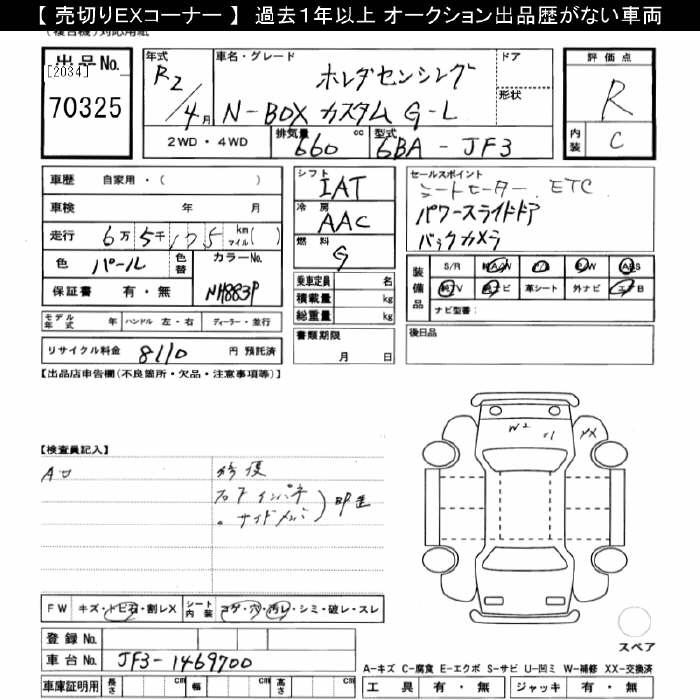 【 売切りEXコーナー 】 過去1年以上 オークション出品歴がない車両
(複合機)対応用紙
出品No.
[2034]
70325
年式
R2/4月
車名・グレード
ホンダセンシング
N-BOX カスタム G-L
ドア
形状
評価点
R
内装
C
2WD・4WD
排気量
660
cc
型式
6BA-JF3
車歴 自家用・( )
車検 年 月
走行 6万5千175 km マイル( )
色 パール 色替 カラーNo.
NH883P
保証書 有・無
モデル年式 年 ハンドル 左・右 ディーラー・並行
リサイクル料金 8110 円 預託済
シフト
IAT
冷房
AAC
燃料
G
乗車定員 名
積載量 kg
総重量 kg
書類期限
月 日
セールスポイント
シートヒーター、ETC
パワースライドドア
バックカメラ
装備品
S/R 純A/W P/S P/W ABS
純TV 純ナビ 革シート 外ナビ エアB
ナビ型番:
後日品
【出品店申告欄(不良箇所・欠品・注意事項等)】
【検査員記入】
修復
右F インパネ
サイドメンバ
W2
XX
FW キズ・トビ石・割レX シート内装 コゲ・穴・汚レ・シミ・破レ・スレ
登録No.
車台No. JF3-1469700
車庫証明用 長さ cm 幅 cm 高さ cm
スペア
A-キズ C-腐食 E-エクボ S-サビ U-凹ミ W-補修 XX-交換済
工具 有・無 ジャッキ 有・無